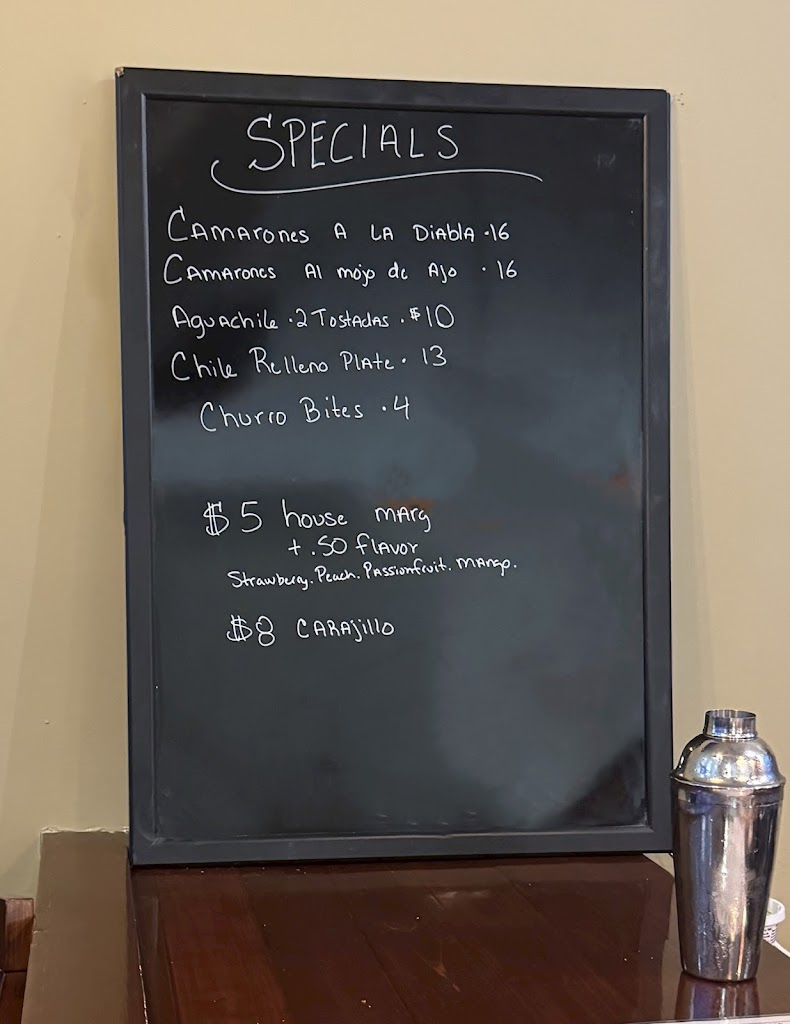 SPECIALS
CAMARONES A LA DIABLA -16
CAMARONES Al mojo de AJO · 16
AguAchile · 2 TOSTADAS · $10
Chile Relleno PLATE · 13
Churro Bites · 4
$5 house MARg
+ .50 flAVOr
Strawberry. Peach. PASSIONfruit. MANgo.
$8 CARAjillo